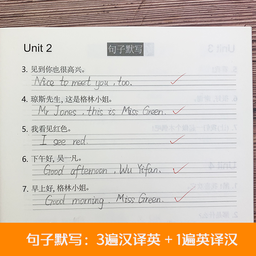 Unit 2
句子默写
3. 见到你也很高兴。
Nice to meet you, too.
4. 琼斯先生，这是格林小姐。
Mr Jones, this is Miss Green.
5. 我看见红色。
I see red.
6. 下午好，吴一凡。
Good afternoon, Wu Yifan.
7. 早上好，格林小姐。
Good morning, Miss Green.
句子默写：3遍汉译英+1遍英译汉